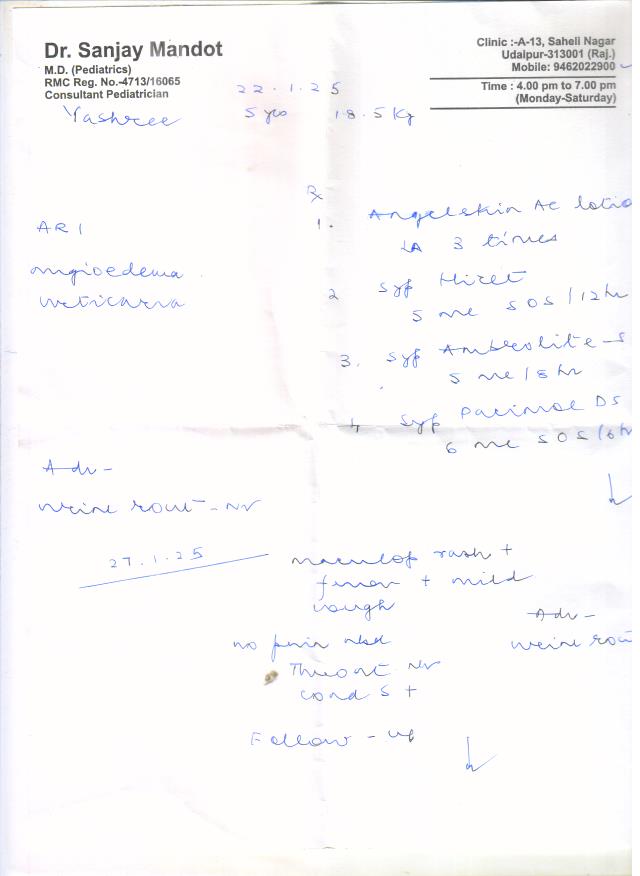 Dr. Sanjay Mandot
M.D. (Pediatrics)
RMC Reg. No.-4713/16065
Consultant Pediatrician
Clinic :-A-13, Saheli Nagar
Udaipur-313001 (Raj.)
Mobile: 9462022900
Time : 4.00 pm to 7.00 pm
(Monday-Saturday)
22.1.25
Yashree 5 yrs 18.5 Kg
Rx
ARI
angioedema
urticaria
1. Angelskin AC lotio
LA 3 times
2 Syp Hiret
5 ml SOS/12hr
3. Syp Ambrolite-S
5 ml/8hr
4 Syp Pacimol DS
6 ml SOS/6hr
Adv-
urine rout - NV
27.1.25
maculop rash +
fever + mild
cough
no pain abd
Throat NV
cond S +
Adv-
urine rout
Follow-up